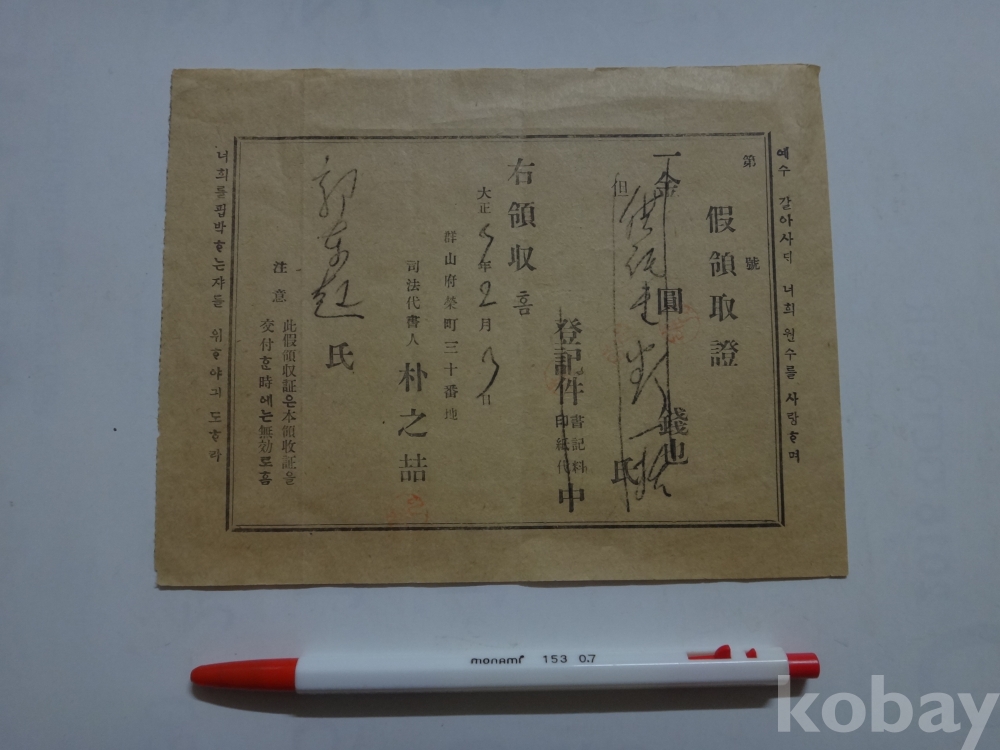 예수 갈아사ᄃᆡ 너희 원수를 사랑ᄒᆞ며
第 號
假領取證
一金 圓 錢也
但 氏
登記件 書記料 印紙代 中
右領収홈
大正 5 年 2 月 3 日
群山府榮町三十番地
司法代書人 朴之喆
郭東起 氏
注意 此假領収証은本領收証을
交付ᄒᆞᆯ時에는無効로홈
너희를핍박ᄒᆞ는쟈를 위ᄒᆞ야긔도ᄒᆞ라
monami 153 0.7
kobay